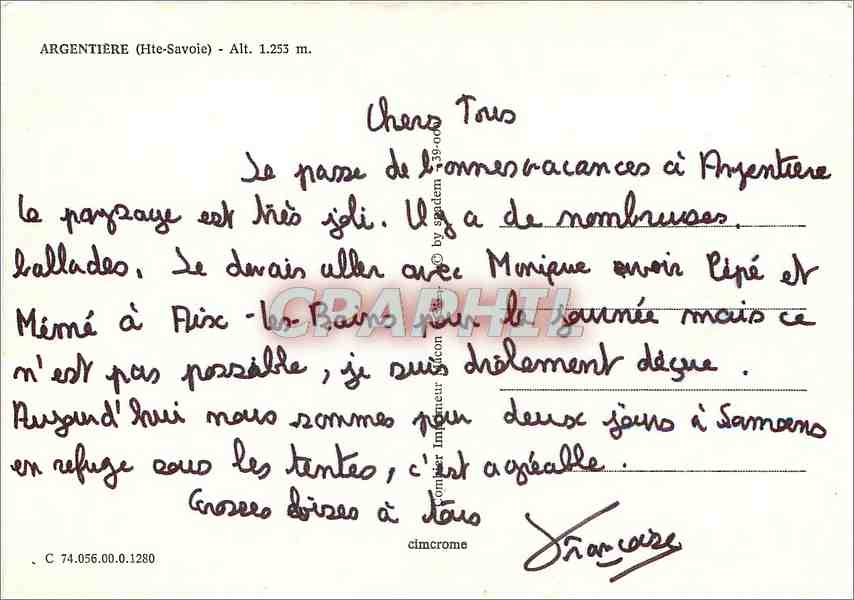 ARGENTIÈRE (Hte-Savoie) - Alt. 1.253 m.
Chers Tous
Je passe de bonnes vacances à Argentiere
le paysage est très joli. Il y a de nombreuses
ballades. Je devais aller avec Monique voir Pépé et
Mémé à Aix-les-Bains pour la journée mais ce
n'est pas possible, je suis drôlement déçue.
Aujourd'hui nous sommes pour deux jours à Samoens
en refuge sous les tentes, c'est agréable.
Grosses bises à tous
Françoise
CPAPHIL
Combier Imprimeur Mâcon
© by spadem - 39-00
cimcrome
C 74.056.00.0.1280